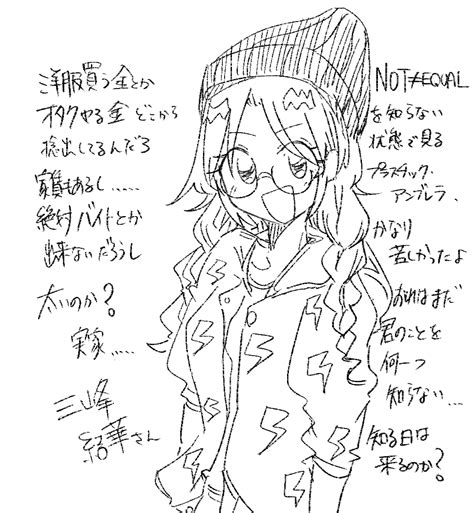 洋服買う金とか
オタクやる金どこから
捻出してるんだろ
家賃もあるし......
絶対バイトとか
出来ないだろうし
太いのか?
実家.....
三峰
結華さん
NOT≠EQUAL
を知らない
状態で見る
プラスチック・
アンブレラ、
かなり
苦しかったよ
おれはまだ
君のことを
何一つ
知らない...
知る日は
来るのか?